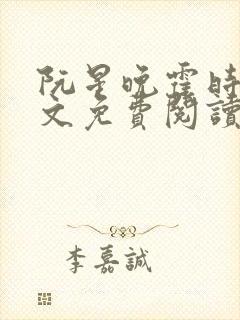 阮星晚霆時
文免費閱讀
李嘉誠